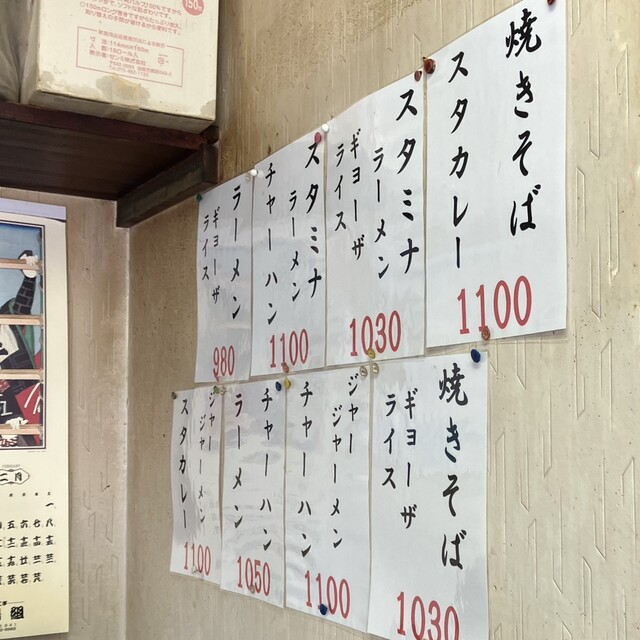 焼きそば
スタカレー
1100
スタミナ
ラーメン
ギョーザ
ライス
1030
スタミナ
ラーメン
チャーハン
1100
ラーメン
ギョーザ
ライス
980
焼きそば
ギョーザ
ライス
1030
ジャー
ジャーメン
チャーハン
1100
チャーハン
ラーメン
1050
ジャー
ジャーメン
スタカレー
1100
150m
二月
組